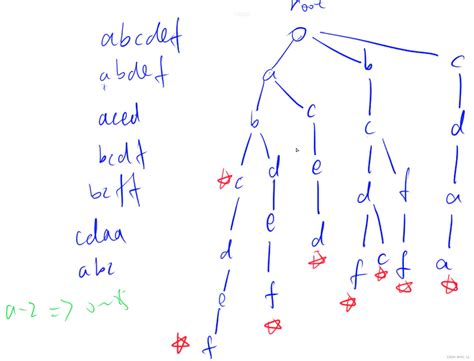 root
abcdef
abdef
aced
bcdf
bcff
cdaa
abc
a b c
b c c d
c d e d f a
d e d f c f a
e f
f
a-z =>